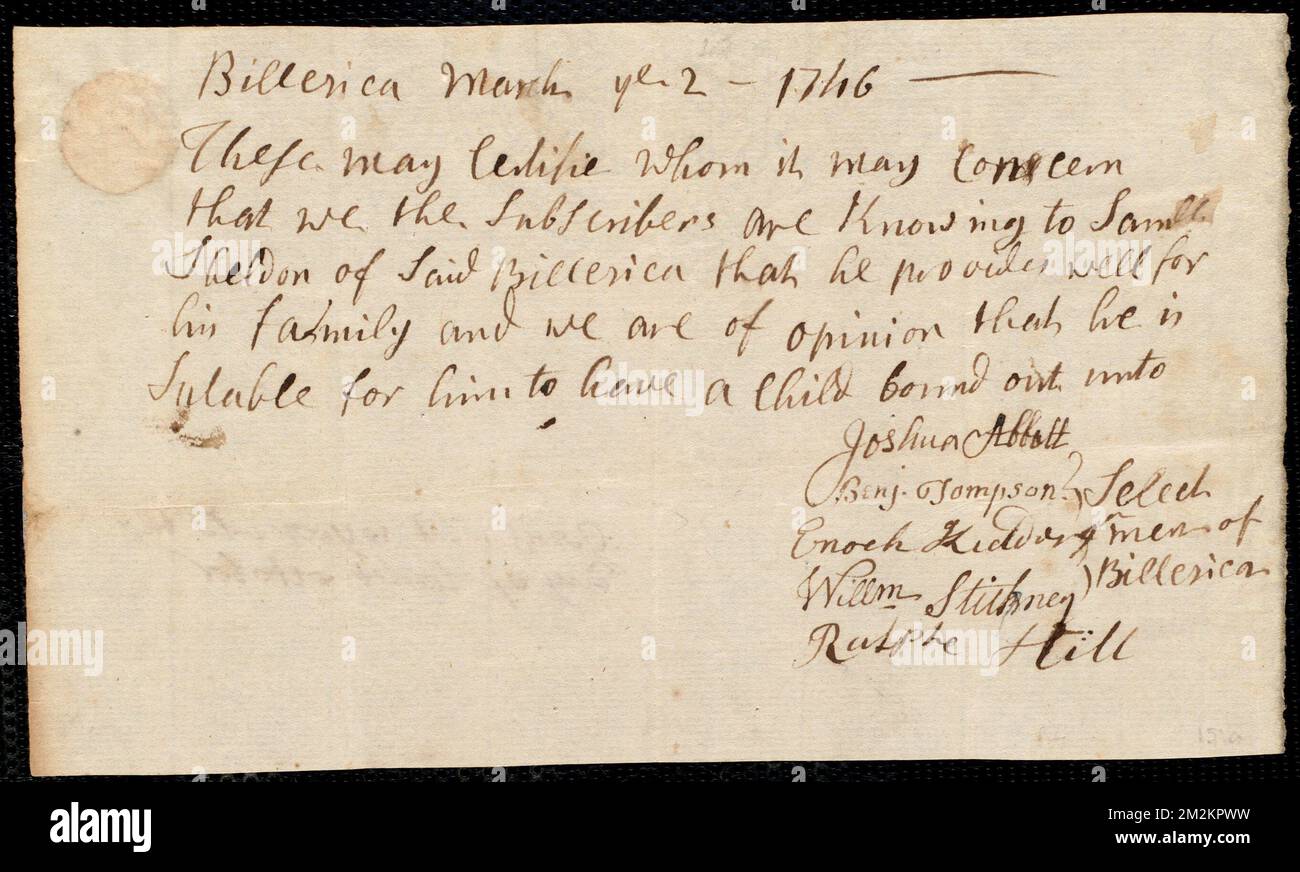 Billerica March ye 2 - 1746
These may Certifie whom it may Concern
that we the Subscribers are Knowing to Samll
Sheldon of Said Billerica that he provides well for
his family and we are of opinion that he is
Sutable for him to have a Child bound out unto
Joshua Abbott
Benj. Tompson Select
Enoch Kidder men of
Willm Stickney Billerica
Ralphe Hill
15a
alamy
Image ID: 2M2KPWW
www.alamy.com